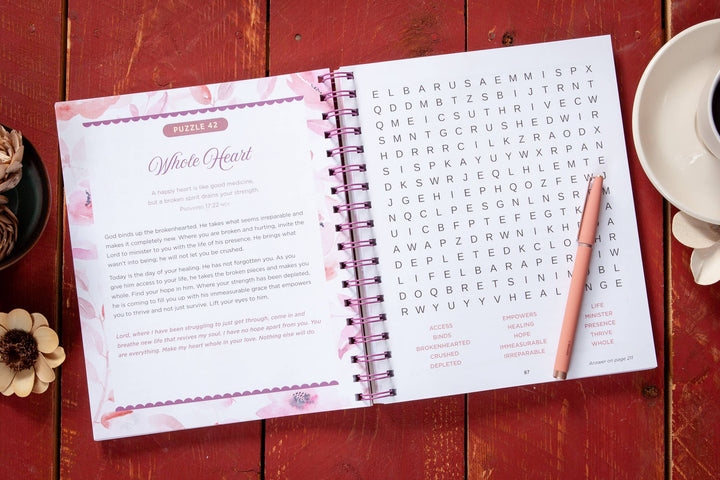 PUZZLE 42
Whole Heart
A happy heart is like good medicine,
but a broken spirit drains your strength.
Proverbs 17:22 NCV
God binds up the brokenhearted. He takes what seems irreparable and
makes it completely new. Where you are broken and hurting, invite the
Lord to minister to you with the life of his presence. He brings what
wasn't into being, he will not let you be crushed.
Today is the day of your healing. He has not forgotten you. As you
give him access to your life, he takes the broken pieces and makes you
whole. Find your hope in him. Where your strength has been depleted,
he is coming to fill you up with his immeasurable grace that empowers
you to thrive and not just survive. Lift your eyes to him.
Lord, where I have been struggling to just get through, come in and
breathe new life that revives my soul. I have no hope apart from you. You
are everything. Make my heart whole in your love. Nothing else will do.
E L B A R U S A E M M I S P X
Q D D M B T Z S B I J T R N T
Q M E I C S U T H R I V E C W
S M N T G C R U S H E D W I R
H D R R R C I L K Z R A O D X
S I S P K A Y U Y W X R P A N
D K S W R J E Q L H L E M T E
J G E H I E P H Q O Z F E W
N Q C L P E S G N L N S R
U I C B F P T E F E G T N
A W A P Z D R W N I K H
D E P L E T E D K C L O
L I F E L B A R A P E R
D O Q B R E T S I N I M B L
R W Y U Y Y V H E A L N G E
ACCESS
BINDS
BROKENHEARTED
CRUSHED
DEPLETED
EMPOWERS
HEALING
HOPE
IMMEASURABLE
IRREPARABLE
LIFE
MINISTER
PRESENCE
THRIVE
WHOLE
87
Answer on page 211